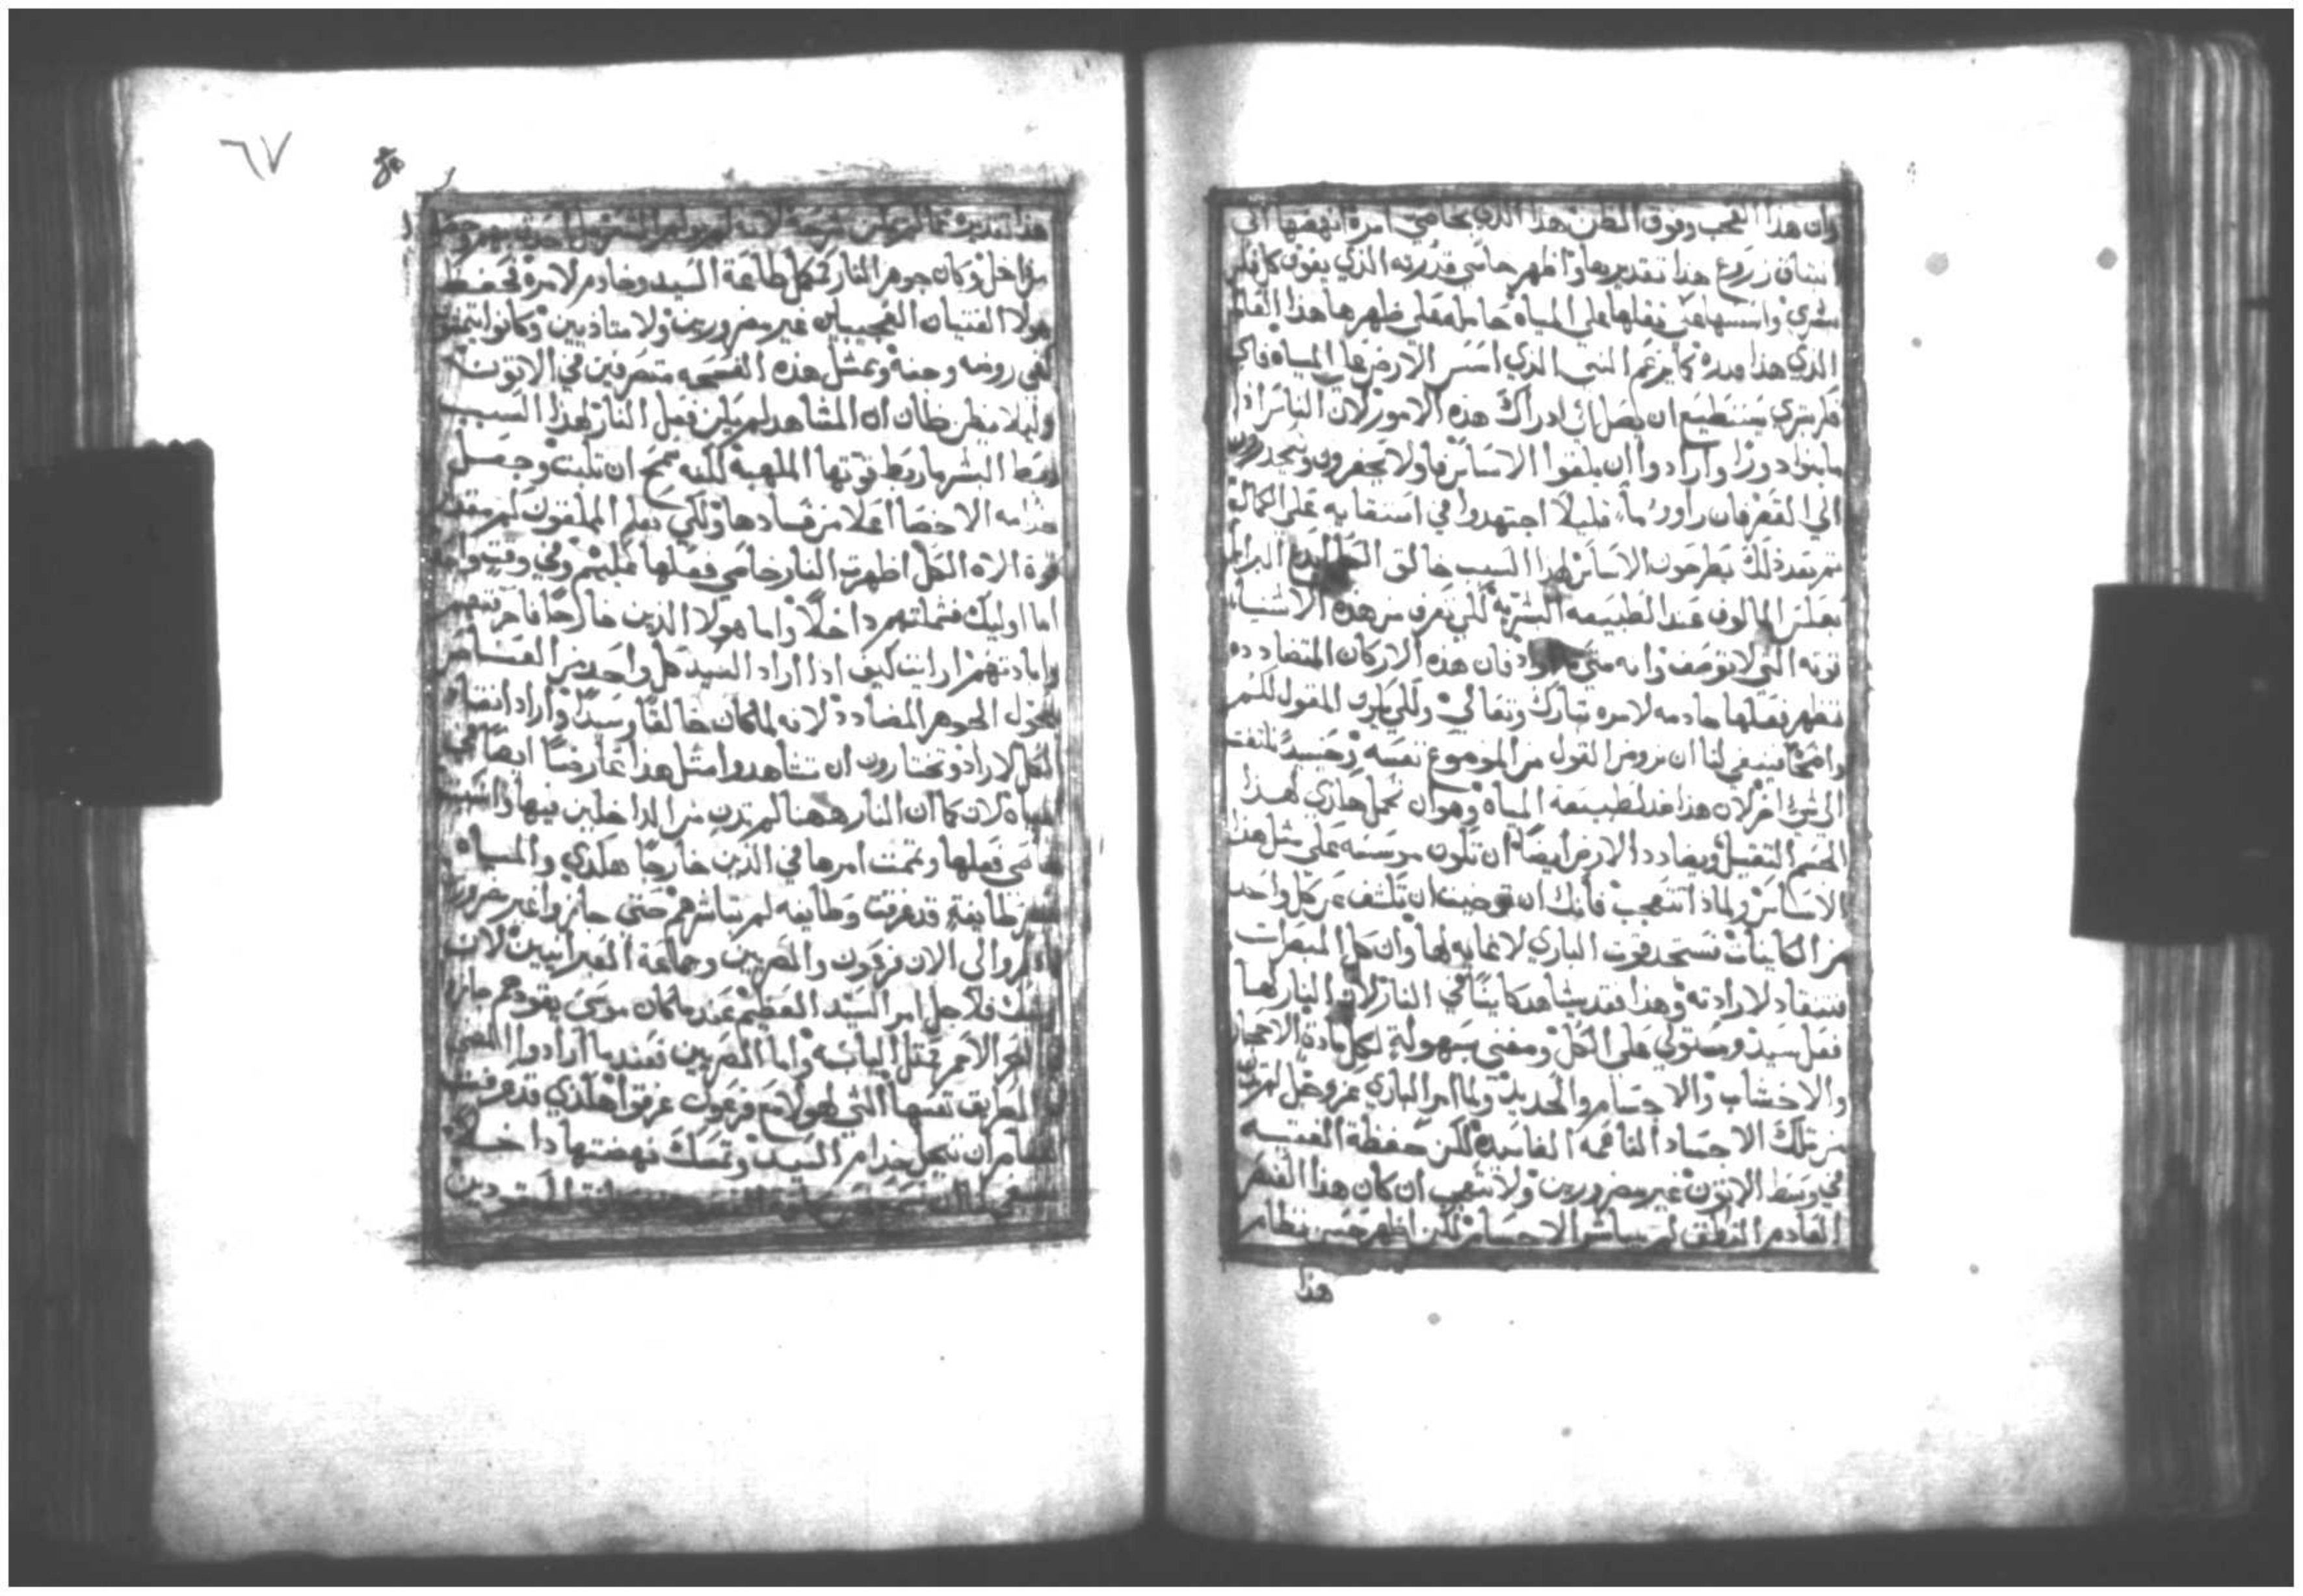 وان هذا العجب وفوق الظن هذا الذي بخاصي امره انهضها الي
انبثاق زروع هذا بتقديره واظهر خاصي قدرته الذي يفوق كل فكر
بشري واسسها على المياه حامله على ظهرها هذا العالم
الذي هذا قدره كما يزعم النبي الذي اسس الارض على المياه فاي
فكر بشري يستطيع ان يصل الى ادراك هذه الامور لان الناس اذا
ما بنوا دورا وارادوا ان يلقوا الاساس فاولا يحفرون
الي القعر فان راوا ما قليلا اجتهدوا في استقايه علي الكمال
ثم بعد ذلك يطرحون الاساس لهذا السبب خالق الكل ابدع البرايا
بعكس المالوف عند الطبيعه البشريه لكي تعرف من هذه الاشياء
قوته التي لا توصف وانه متى اراد فان هذه الاركان المتضادده
تظهر فعلها خادمه لامره تبارك وتعالى ولكي يكون القول لكم
واضحا فينبغي لنا ان نروم القول من الموضوع نفسه وحينيذ نلتفت
الى شي اخر لان هذا ضد لطبيعة المياه وهو ان تحمل هكذي لهذا
الجسم الثقيل ويضادد الارض ايضا ان تكون موسسه على مثل هذا
الاساس ولماذا تتعجب فانك ان توخيت ان تكشف عن كل واحد
من الكاينات تستجد قوت الباري لا غايه لها وان كل المبصرات
تنقاد لارادته وهذا فقد يشاهد كاينا في النار لان النار لها
فعل سيد ومستولي على الكل ومفني بسهولة لكل مادة الاحجار
والاخشاب والاجسام والحديد ولما امر الباري عز وجل لم تدن
من تلك الاجساد الناعمه الفاسده لكن حفظة الفتيه
في وسط الاتون غير مضرورين ولا تتعجب ان كان هذا العنصر
العادم النطق لم يباشر الاجسام لكن اظهر حسن نظام
هذا
٦٧
هذا تقديره
من داخل وكان جوهر النار تكمل طاعة السيد وخادم لامره تحفظ
هولا الفتيان العجيبين غير مضرورين ولا متاذيين وكانوا يتمشون
كفي روضه وجنه وبمثل هذه الفسحه متصرفين في الاتون
وليلا يظن ظان ان المشاهد لم يكن فعل النار لهذا السبب
محب البشر ما ربط قوتها الملهبة لكنه سمح ان تلبت وجعل
خدامه الاخصا اعلا من فسادها ولكي يعلم الملقون لهم مقدار
قوة الاه الكل اظهرت النار خاصي فعلها فيهم وفي وقت واحد
اما اوليك فشملتهم داخلا واما هولا الذين خارجا فاحرقتهم
وابادتهم ارايت كيف اذا اراد السيد كل واحد من العناصر
يتحول الجوهر المضادد لانه لما كان خالقا وسيدا واراد انقياد
الكل لارادته وتختارون ان تشاهدوا مثل هذا عارضا ايضا في
المياه لان كما ان النار ههنا لم تدن من الداخلين فيها
خاصي فعلها وتممت امرها في الذين خارجا هكذي والمياه
طايفة قد غرقت وطايفه لم تباشرهم حتي جازوا غير مضرورين
اذكروا لي الان فرعون والمصريين وجماعة العبرانيين لان
اوليك فلاجل امر السيد العظيم عندما كان موسى يقودهم جازوا
في البحر الاحمر كمثل اليابسه واما المصريين فعندما ارادوا المضي
في الطريق نفسها التي لهولا مع فرعون غرقوا هكذي قد عرفت
العناصر ان تبجل خدام السيد وتمسك نهضتها داخلا